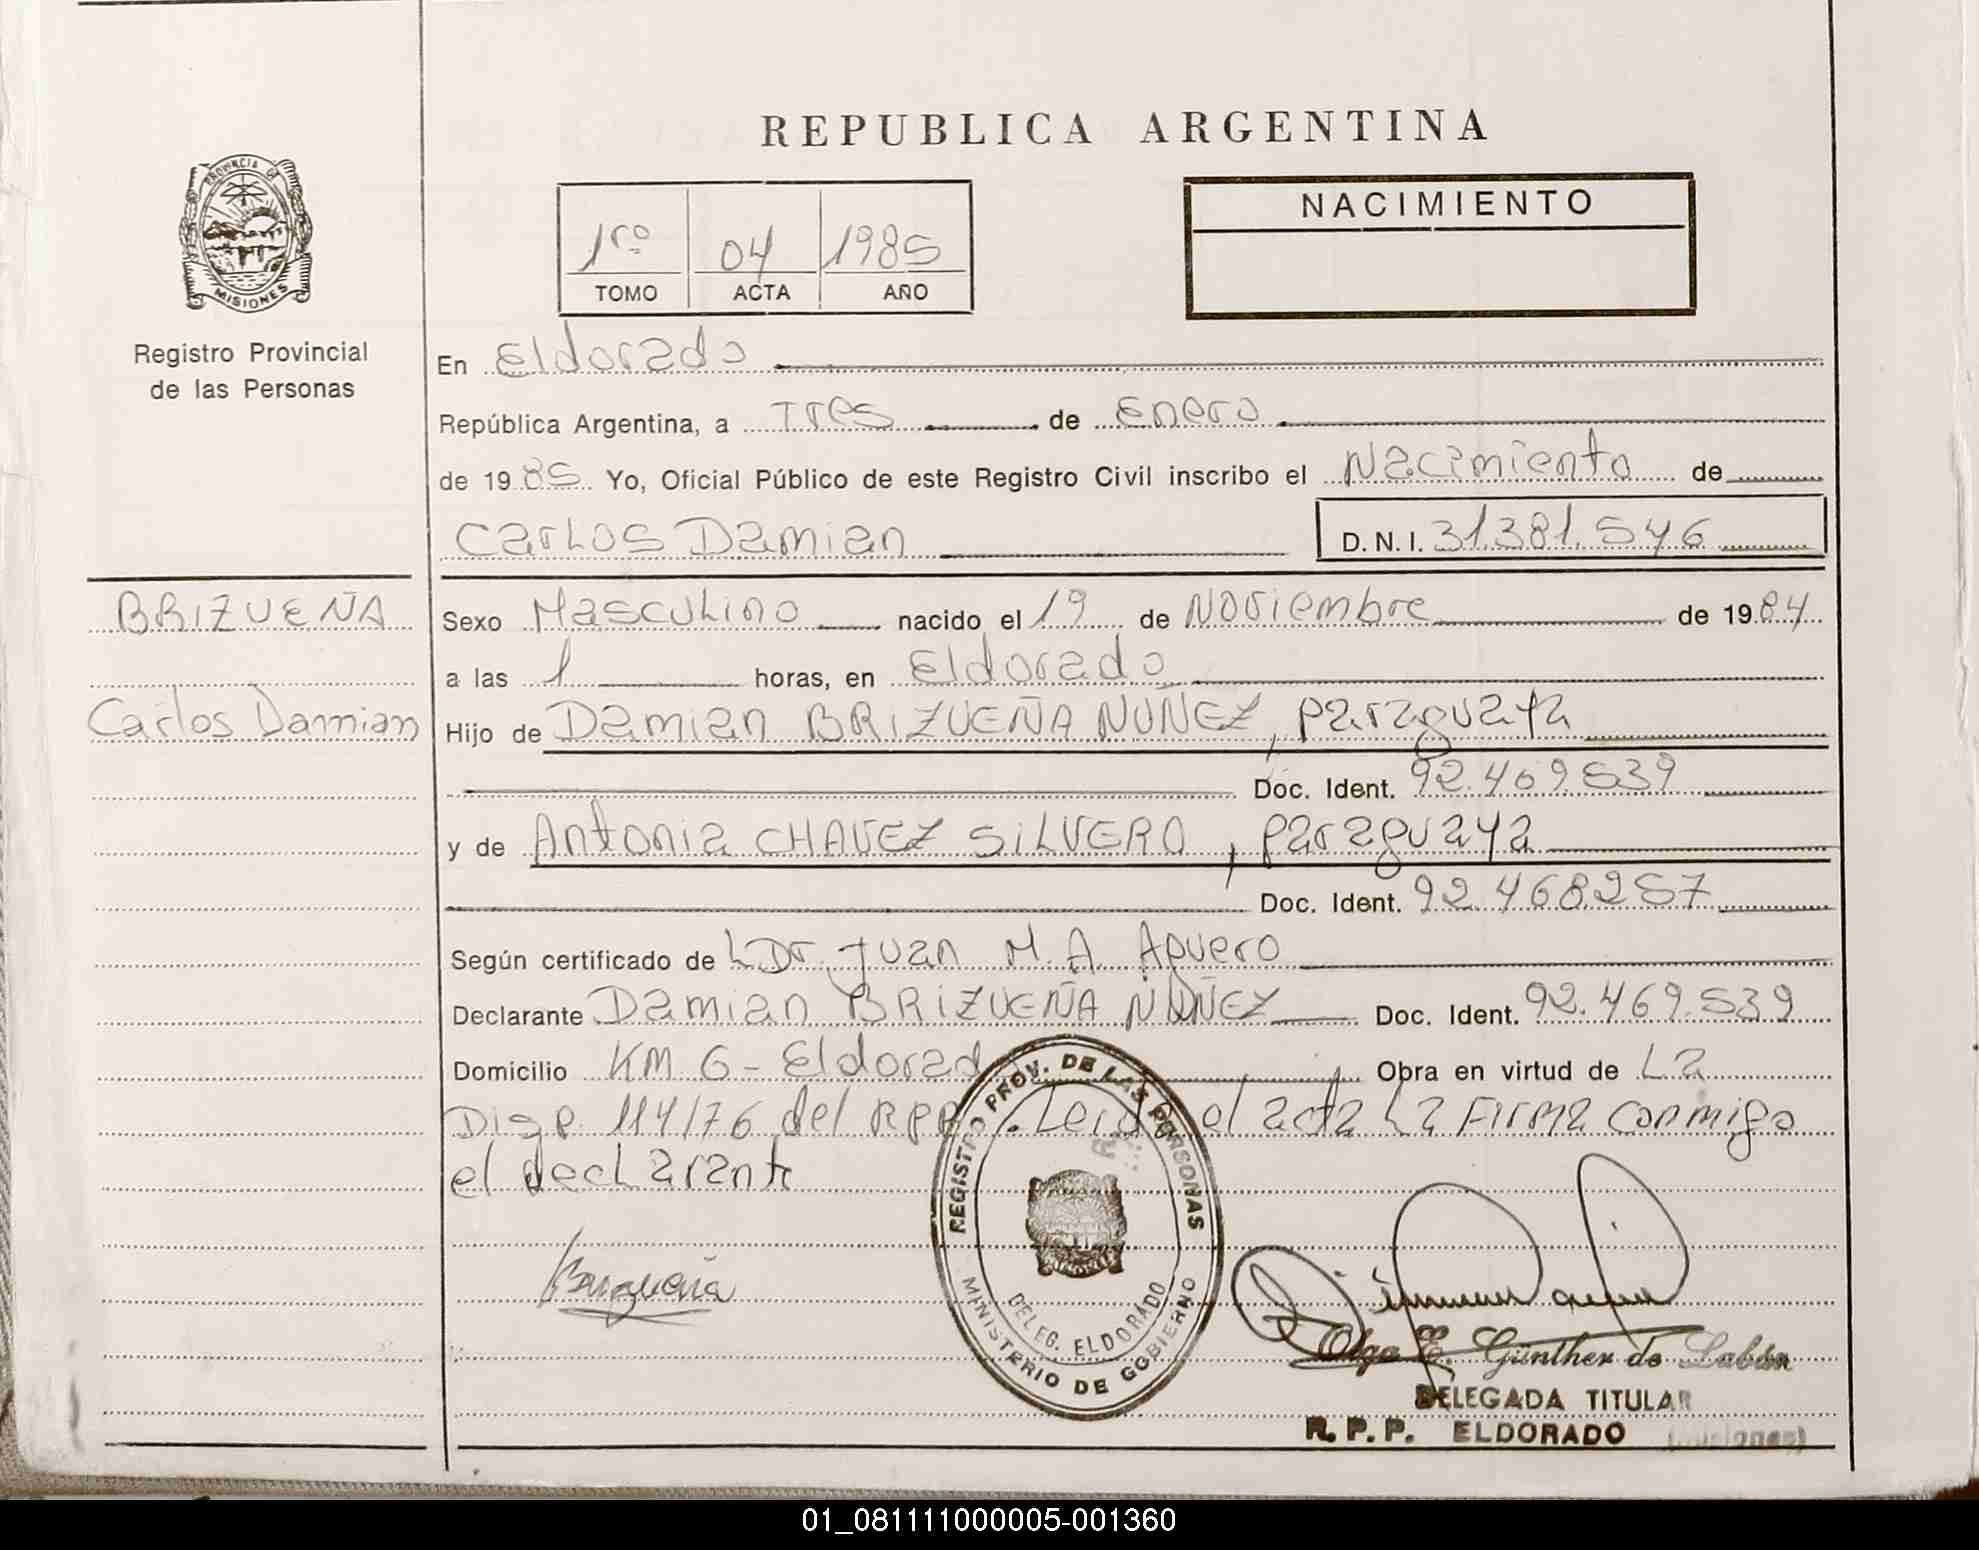 REPUBLICA ARGENTINA
PROVINCIA DE
MISIONES
Registro Provincial
de las Personas
1ro 04 1985
TOMO ACTA AÑO
NACIMIENTO
En Eldorado
República Argentina, a Tres de Enero
de 1985 Yo, Oficial Público de este Registro Civil inscribo el Nacimiento de
Carlos Damian D.N.I. 31.381.546
BRIZUEÑA
Carlos Damian
Sexo Masculino nacido el 19 de Noviembre de 1984
a las 1 horas, en Eldorado
Hijo de Damian BRIZUEÑA NUÑEZ, paraguaya
Doc. Ident. 92.469.539
y de Antonia CHAVEZ SILVERO, paraguaya
Doc. Ident. 92.468.257
Según certificado de Dr. Juan M. A. Aguero
Declarante Damian BRIZUEÑA NUÑEZ Doc. Ident. 92.469.539
Domicilio KM 6 - Eldorado Obra en virtud de La
Disp. 114/76 del RPP. Leida el acta La Firma conmigo
el declarante
Brizueña
REGISTRO PROV. DE LAS PERSONAS
DELEG. ELDORADO
MINISTERIO DE GOBIERNO
Olga E. Günther de Labán
DELEGADA TITULAR
R. P. P. ELDORADO (Misiones)
01_081111000005-001360